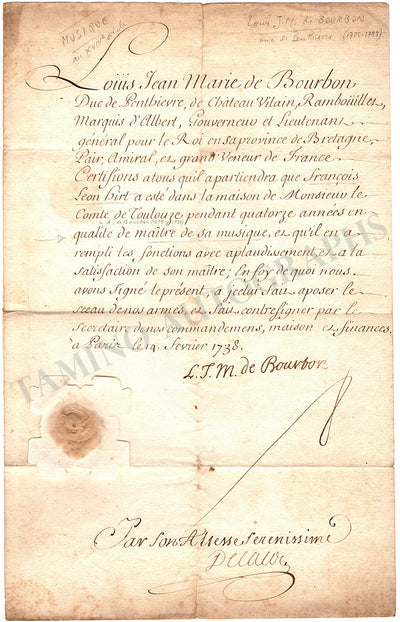 MUSIQUE
au XVIIIe siècle
Louis J.M. de BOURBON
Duc de Penthièvre (1725-1793)
Loüis Jean Marie de Bourbon
Duc de Penthievre, de Château Vilain, Ramboüillet,
Marquis d'Albert, Gouverneur et Lieutenant
général pour le Roi en sa province de Bretagne,
Pair, Amiral, et grand Veneur de France.
Certifions a tous qu'il apartiendra que François
Leon hirt a esté dans la maison de Monsieur le
Comte de Toulouze pendant quatorze années en
qualité de maître de sa musique, et qu'il en a
rempli les fonctions avec aplaudissement, et a la
satisfaction de son maître; En foy de quoi nous
avons Signé le présent, a jcelui fait aposer le
sceau de nos armes, et fait contresigner par le
Secretaire de nos commandemens, maison et finances.
a Paris le 14. fevrier 1738.
L. J. M. de Bourbon
Par Son Altesse Serenissime
TAMINO AUTOGRAPHS